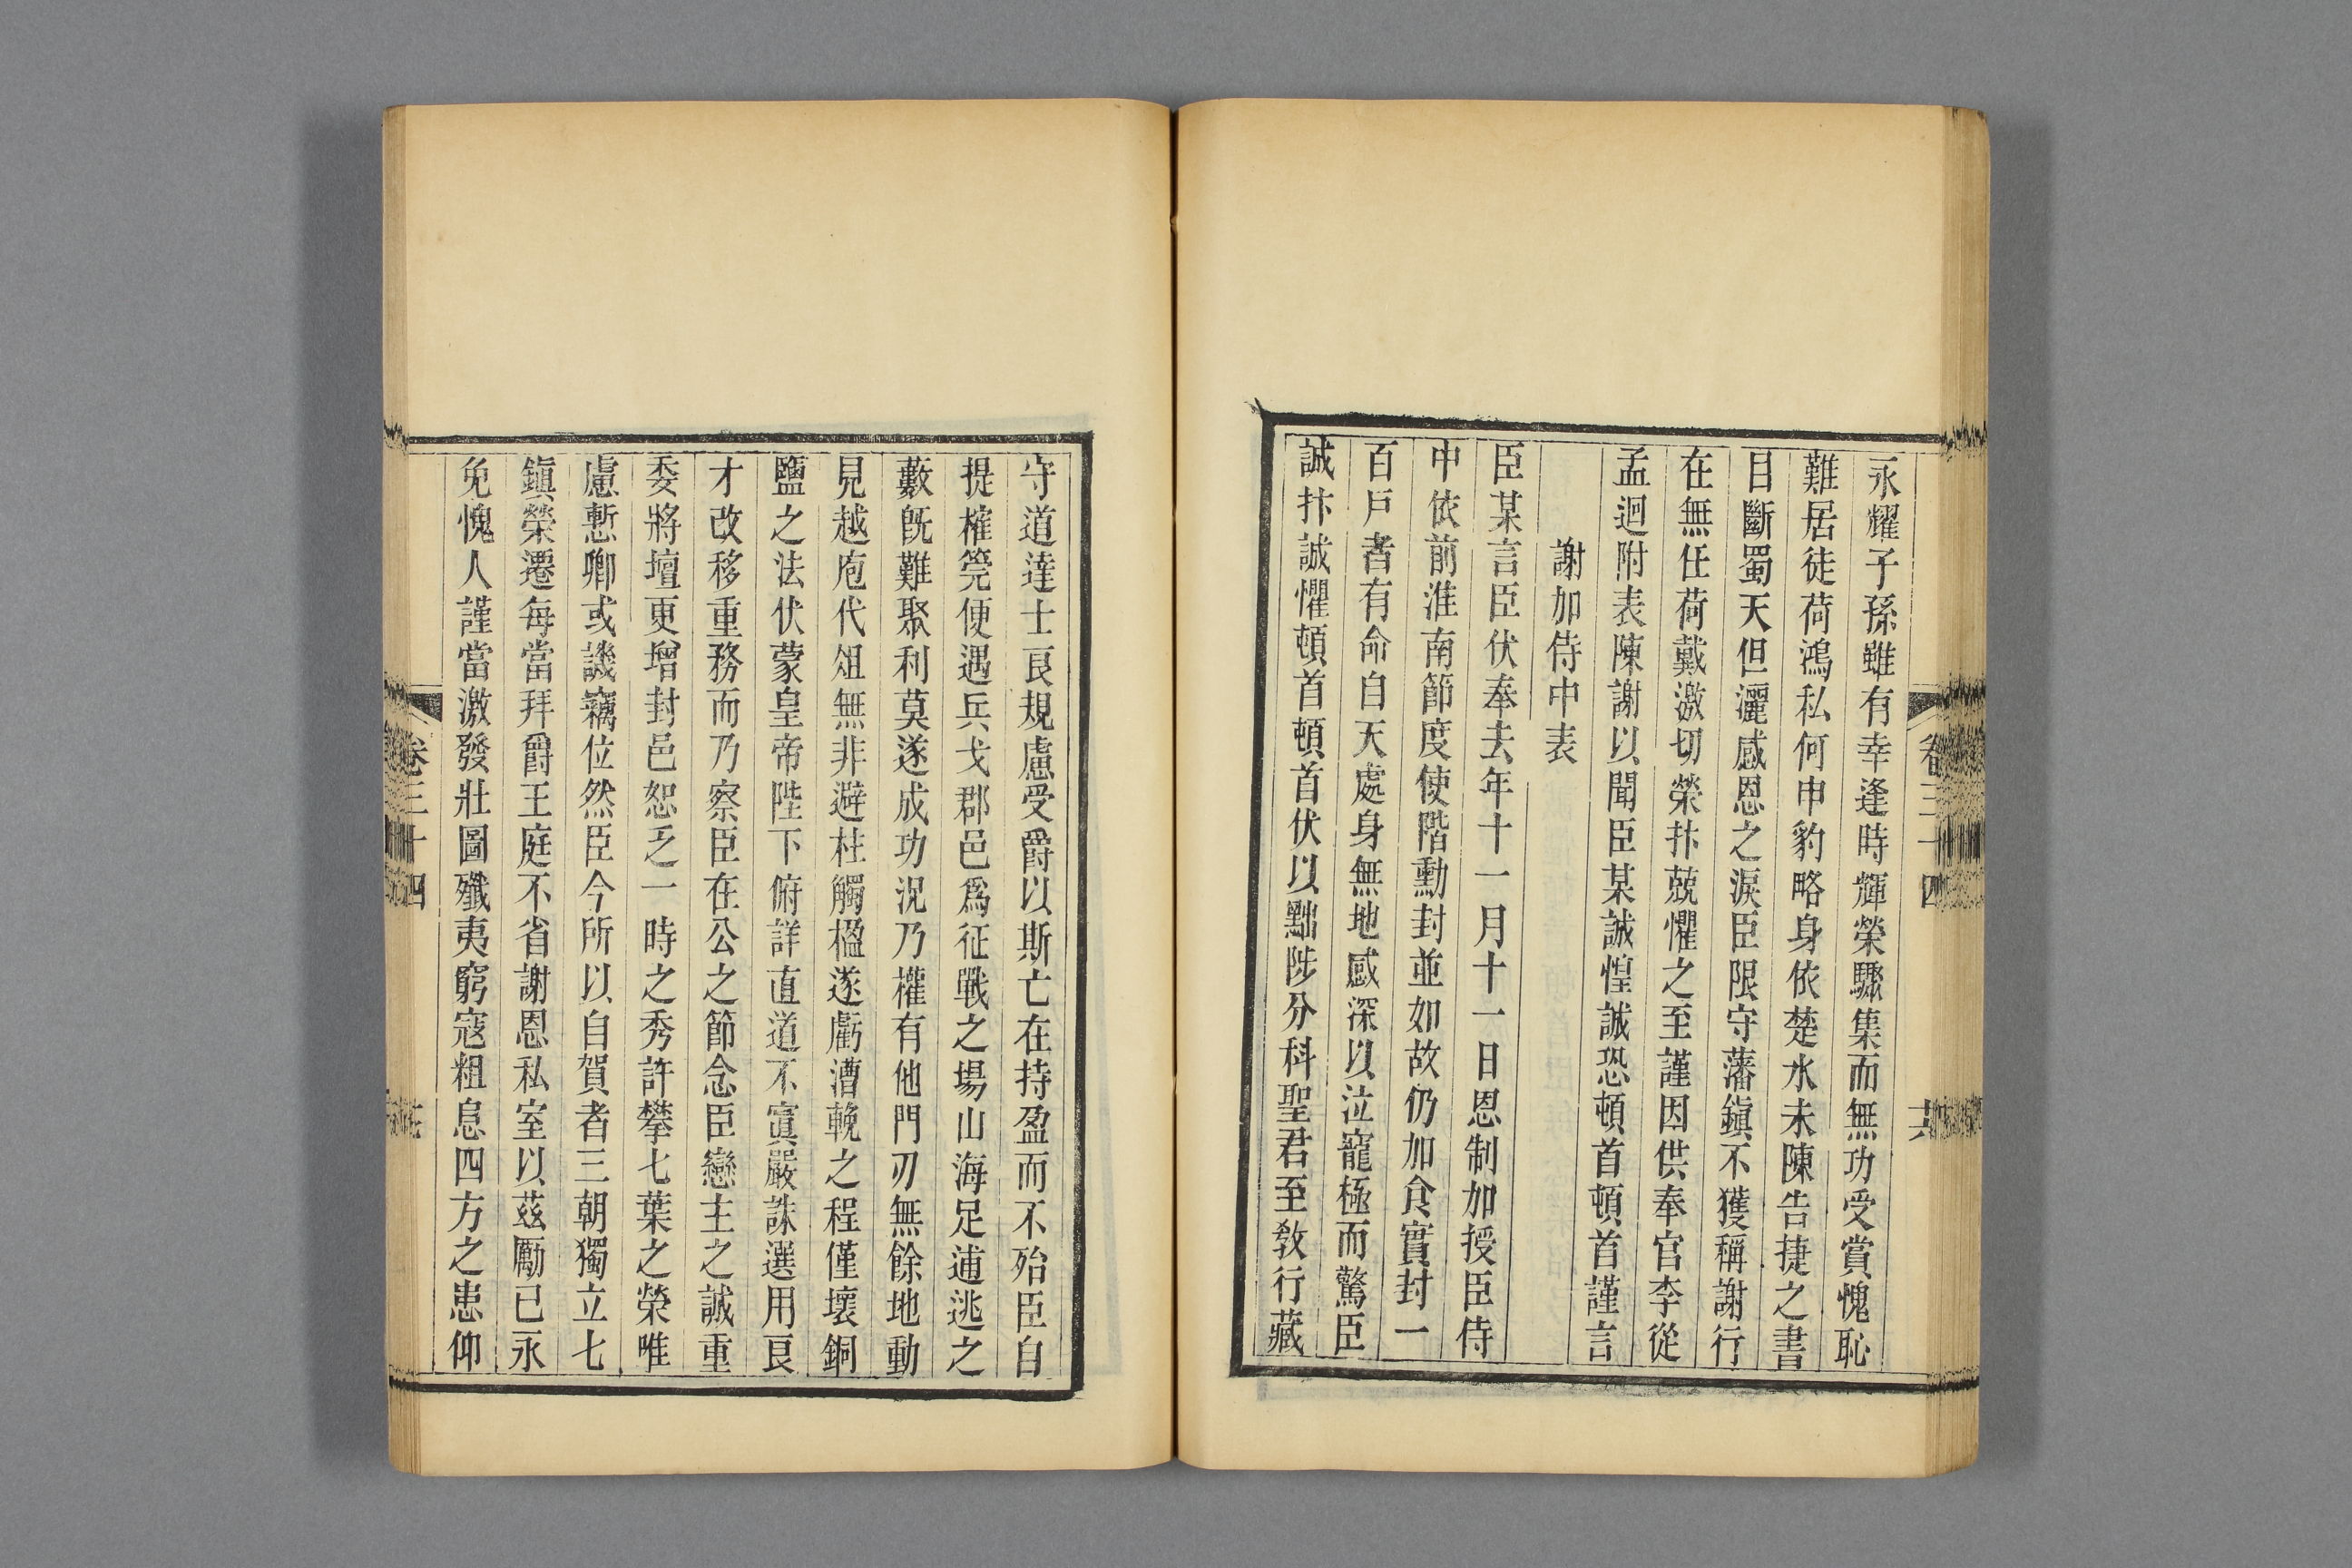 永耀子孫雖有幸逢時輝榮驟集而無功受賞愧恥
難居徒荷鴻私何申豹略身依楚水未陳告捷之書
目斷蜀天但灑感恩之淚臣限守藩鎭不獲稱謝行
在無任荷戴激切榮抃兢懼之至謹因供奉官李從
孟迴附表陳謝以聞臣某誠惶誠恐頓首頓首謹言
謝加侍中表
臣某言臣伏奉去年十一月十一日恩制加授臣侍
中依前淮南節度使階勳封並如故仍加食實封一
百戶者有命自天處身無地感深以泣寵極而驚臣
誠抃誠懼頓首頓首伏以黜陟分科聖君至敎行藏
守道達士良規慮受爵以斯亡在持盈而不殆臣自
提榷筦便遇兵戈郡邑爲征戰之場山海足逋逃之
藪旣難聚利莫遂成功況乃權有他門刃無餘地動
見越庖代俎無非避柱觸楹遂虧漕輓之程僅壞銅
鹽之法伏蒙皇帝陛下俯詳直道不寘嚴誅選用良
才改移重務而乃察臣在公之節念臣戀主之誠重
委將壇更增封邑恕乏一時之秀許攀七葉之榮唯
慮慙卿或譏竊位然臣今所以自賀者三朝獨立七
鎭榮遷每當拜爵王庭不省謝恩私室以茲勵己永
免愧人謹當激發壯圖殲夷窮寇粗息四方之患仰
卷三十四